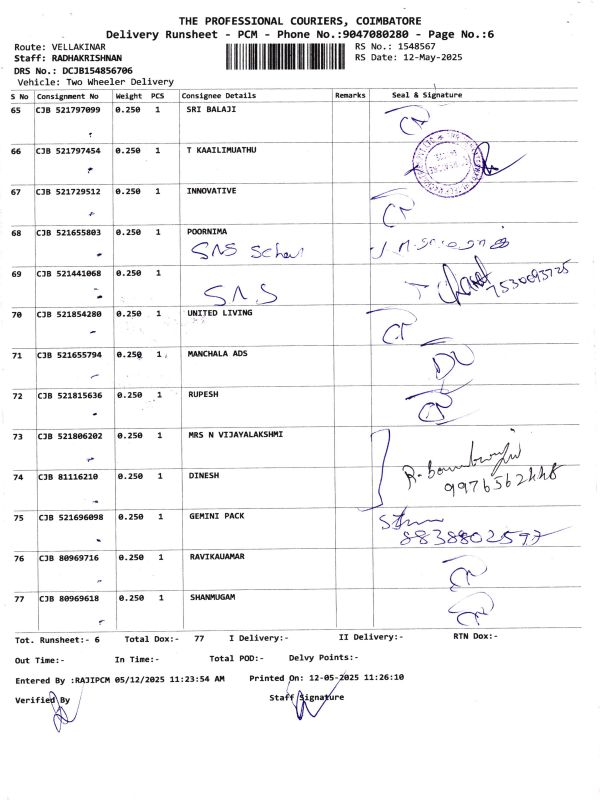 THE PROFESSIONAL COURIERS, COIMBATORE
Delivery Runsheet - PCM - Phone No.:9047080280 - Page No.:6
Route: VELLAKINAR RS No.: 1548567
Staff: RADHAKRISHNAN RS Date: 12-May-2025
DRS No.: DCJB154856706
Vehicle: Two Wheeler Delivery
S No Consignment No Weight PCS Consignee Details Remarks Seal & Signature
65 CJB 521797099 0.250 1 SRI BALAJI
66 CJB 521797454 0.250 1 T KAAILIMUATHU
67 CJB 521729512 0.250 1 INNOVATIVE
68 CJB 521655803 0.250 1 POORNIMA
SNS School
69 CJB 521441068 0.250 1
SNS 7530093725
70 CJB 521854280 0.250 1 UNITED LIVING
71 CJB 521655794 0.250 1 MANCHALA ADS
72 CJB 521815636 0.250 1 RUPESH
73 CJB 521806202 0.250 1 MRS N VIJAYALAKSHMI
74 CJB 81116210 0.250 1 DINESH
9976562448
75 CJB 521696098 0.250 1 GEMINI PACK
8838802597
76 CJB 80969716 0.250 1 RAVIKAUAMAR
77 CJB 80969618 0.250 1 SHANMUGAM
Tot. Runsheet:- 6 Total Dox:- 77 I Delivery:- II Delivery:- RTN Dox:-
Out Time:- In Time:- Total POD:- Delvy Points:-
Entered By :RAJIPCM 05/12/2025 11:23:54 AM Printed On: 12-05-2025 11:26:10
Verified By Staff Signature